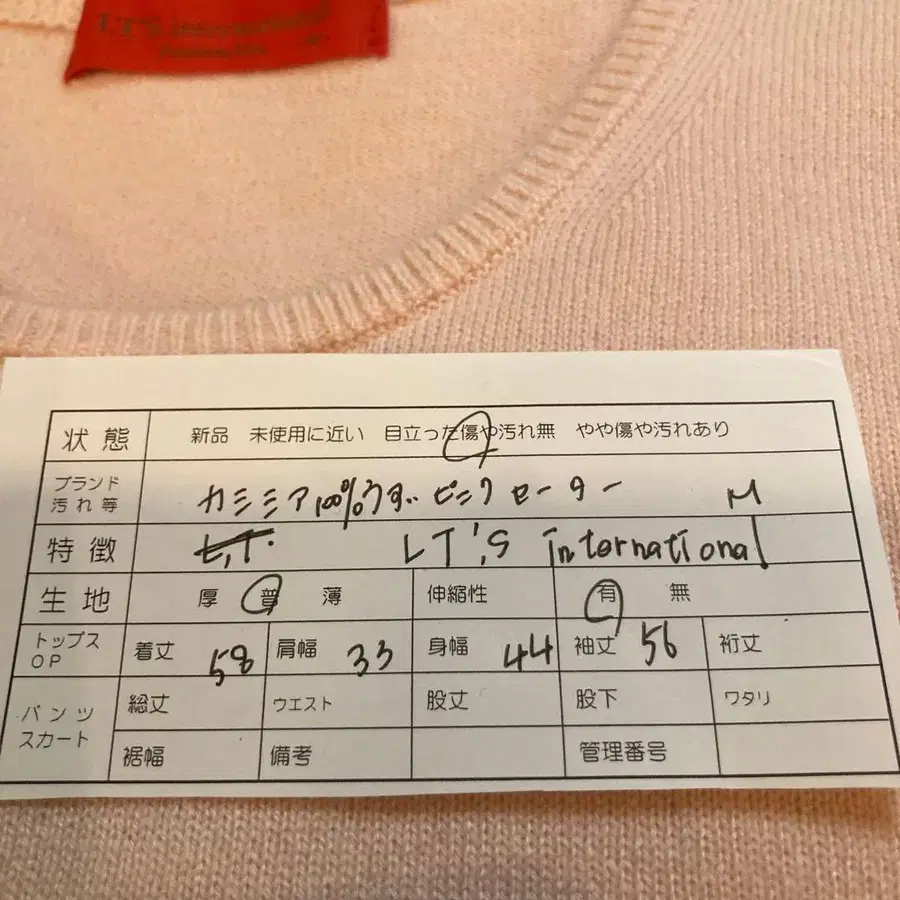 LT'S international
状態 新品 未使用に近い 目立った傷や汚れ無 やや傷や汚れあり
ブランド 汚れ等 カミミア100%うすいピンクセーター M
特徴 L.T. LT'S international
生地 厚 普 薄 伸縮性 有 無
トップス OP 着丈 58 肩幅 33 身幅 44 袖丈 56 裄丈
パンツ スカート 総丈 ウエスト 股丈 股下 ワタリ
裾幅 備考 管理番号